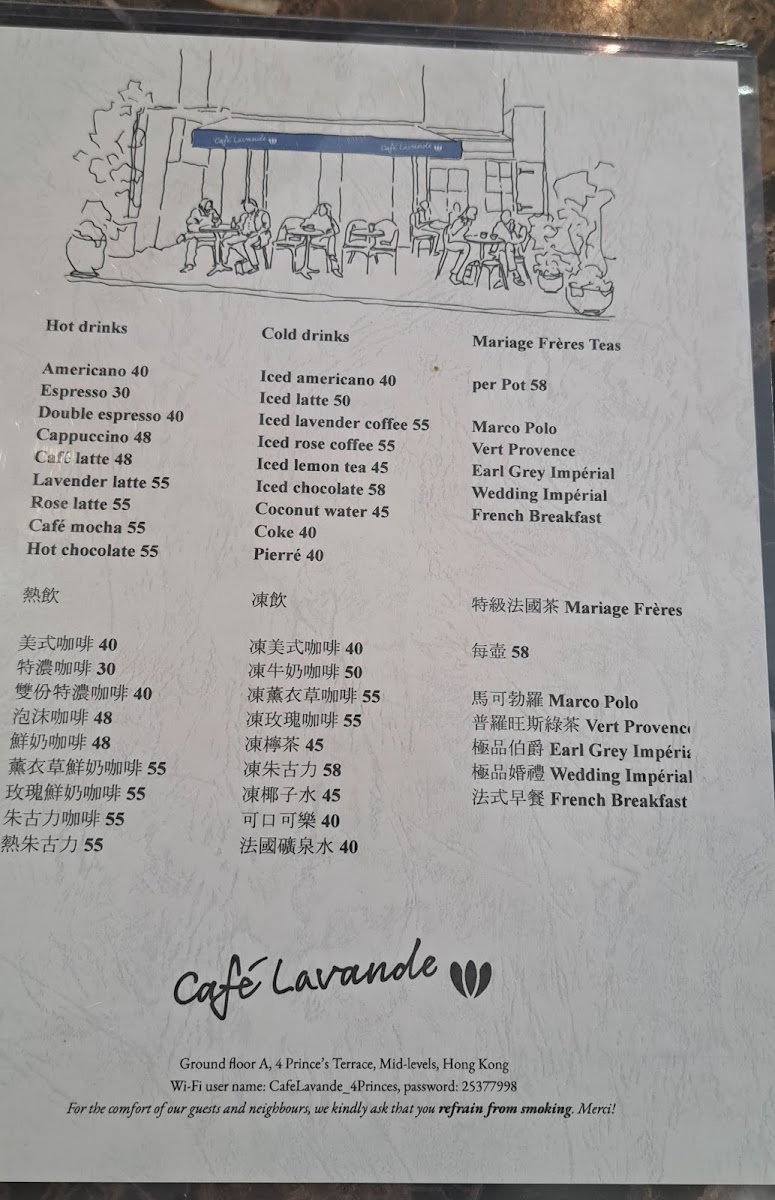 Café Lavande
Café Lavande
Hot drinks
Americano 40
Espresso 30
Double espresso 40
Cappuccino 48
Café latte 48
Lavender latte 55
Rose latte 55
Café mocha 55
Hot chocolate 55
Cold drinks
Iced americano 40
Iced latte 50
Iced lavender coffee 55
Iced rose coffee 55
Iced lemon tea 45
Iced chocolate 58
Coconut water 45
Coke 40
Pierré 40
Mariage Frères Teas
per Pot 58
Marco Polo
Vert Provence
Earl Grey Impérial
Wedding Impérial
French Breakfast
熱飲
美式咖啡 40
特濃咖啡 30
雙份特濃咖啡 40
泡沫咖啡 48
鮮奶咖啡 48
薰衣草鮮奶咖啡 55
玫瑰鮮奶咖啡 55
朱古力咖啡 55
熱朱古力 55
凍飲
凍美式咖啡 40
凍牛奶咖啡 50
凍薰衣草咖啡 55
凍玫瑰咖啡 55
凍檸茶 45
凍朱古力 58
凍椰子水 45
可口可樂 40
法國礦泉水 40
特級法國茶 Mariage Frères
每壺 58
馬可勃羅 Marco Polo
普羅旺斯綠茶 Vert Provence
極品伯爵 Earl Grey Impéria
極品婚禮 Wedding Impérial
法式早餐 French Breakfast
Café Lavande
Ground floor A, 4 Prince's Terrace, Mid-levels, Hong Kong
Wi-Fi user name: CafeLavande_4Princes, password: 25377998
For the comfort of our guests and neighbours, we kindly ask that you refrain from smoking. Merci!